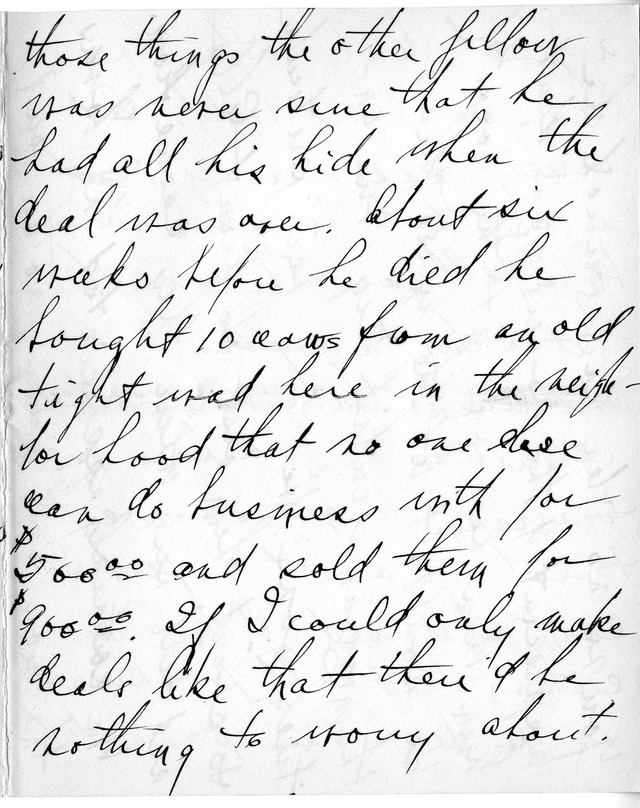 those things the other fellow
was never sure that he
had all his hide when the
deal was over. About six
weeks before he died he
bought 10 cows from an old
tight wad here in the neigh-
bor hood that no one else
can do business with for
$500.00 and sold them for
$900.00. If I could only make
deals like that there'd be
nothing to worry about.